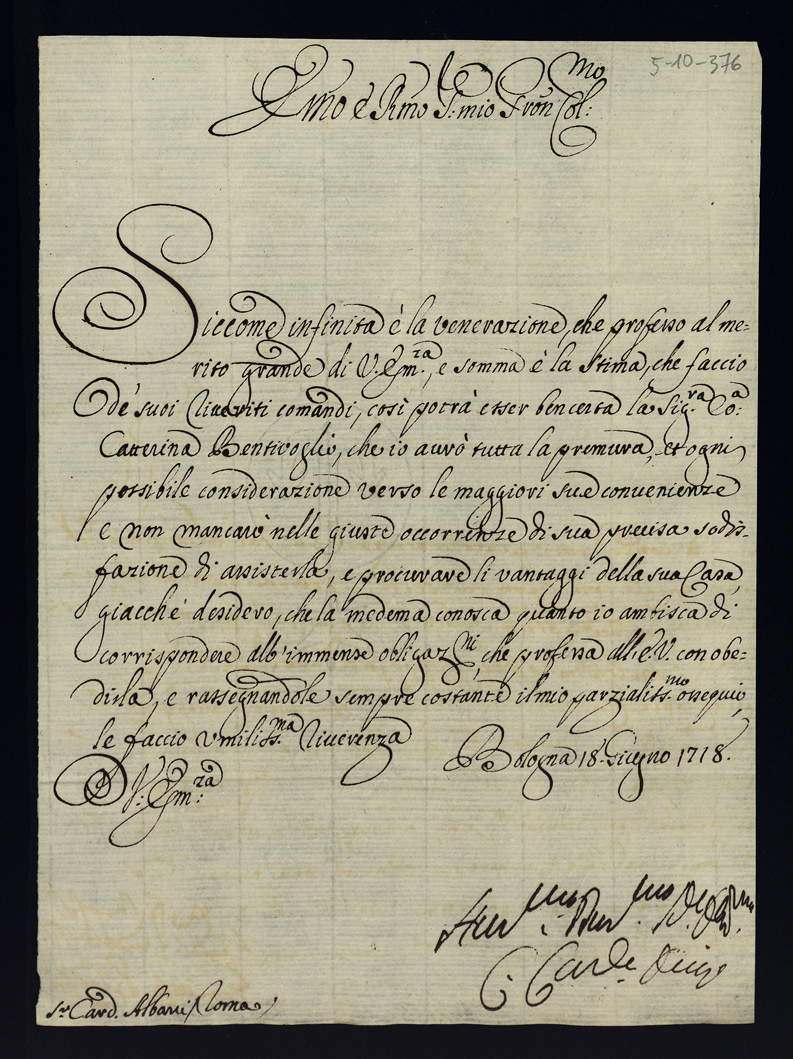 5-10-376
Emo e Rmo S: mio Pron Col:mo
Siccome infinita è la venerazione, che professo al me-
rito grande di V. Em.za, e somma è la stima, che faccio
de' suoi riveriti comandi, così potrà esser bencerta la Sig.ra Co:a
Catterina Bentivoglio, che io avrò tutta la premura, et ogni
possibile considerazione verso le maggiori sue convenienze
e non mancarò nelle giuste occorrenze di sua precisa sodis-
fazione di assisterla, e procurare li vantaggi della sua Casa,
giacche desidero, che la medema conosca quanto io ambisca di
corrispondere all'immense obligaz.ni, che professa all'E.V. con obe-
dirla, e rassegnandole sempre costante il mio parzialiss.mo ossequio,
le faccio umiliss.ma riverenza
Bologna 18 Giugno 1718.
D V: Em:za
C. Card.
Sr Card. Albani Roma